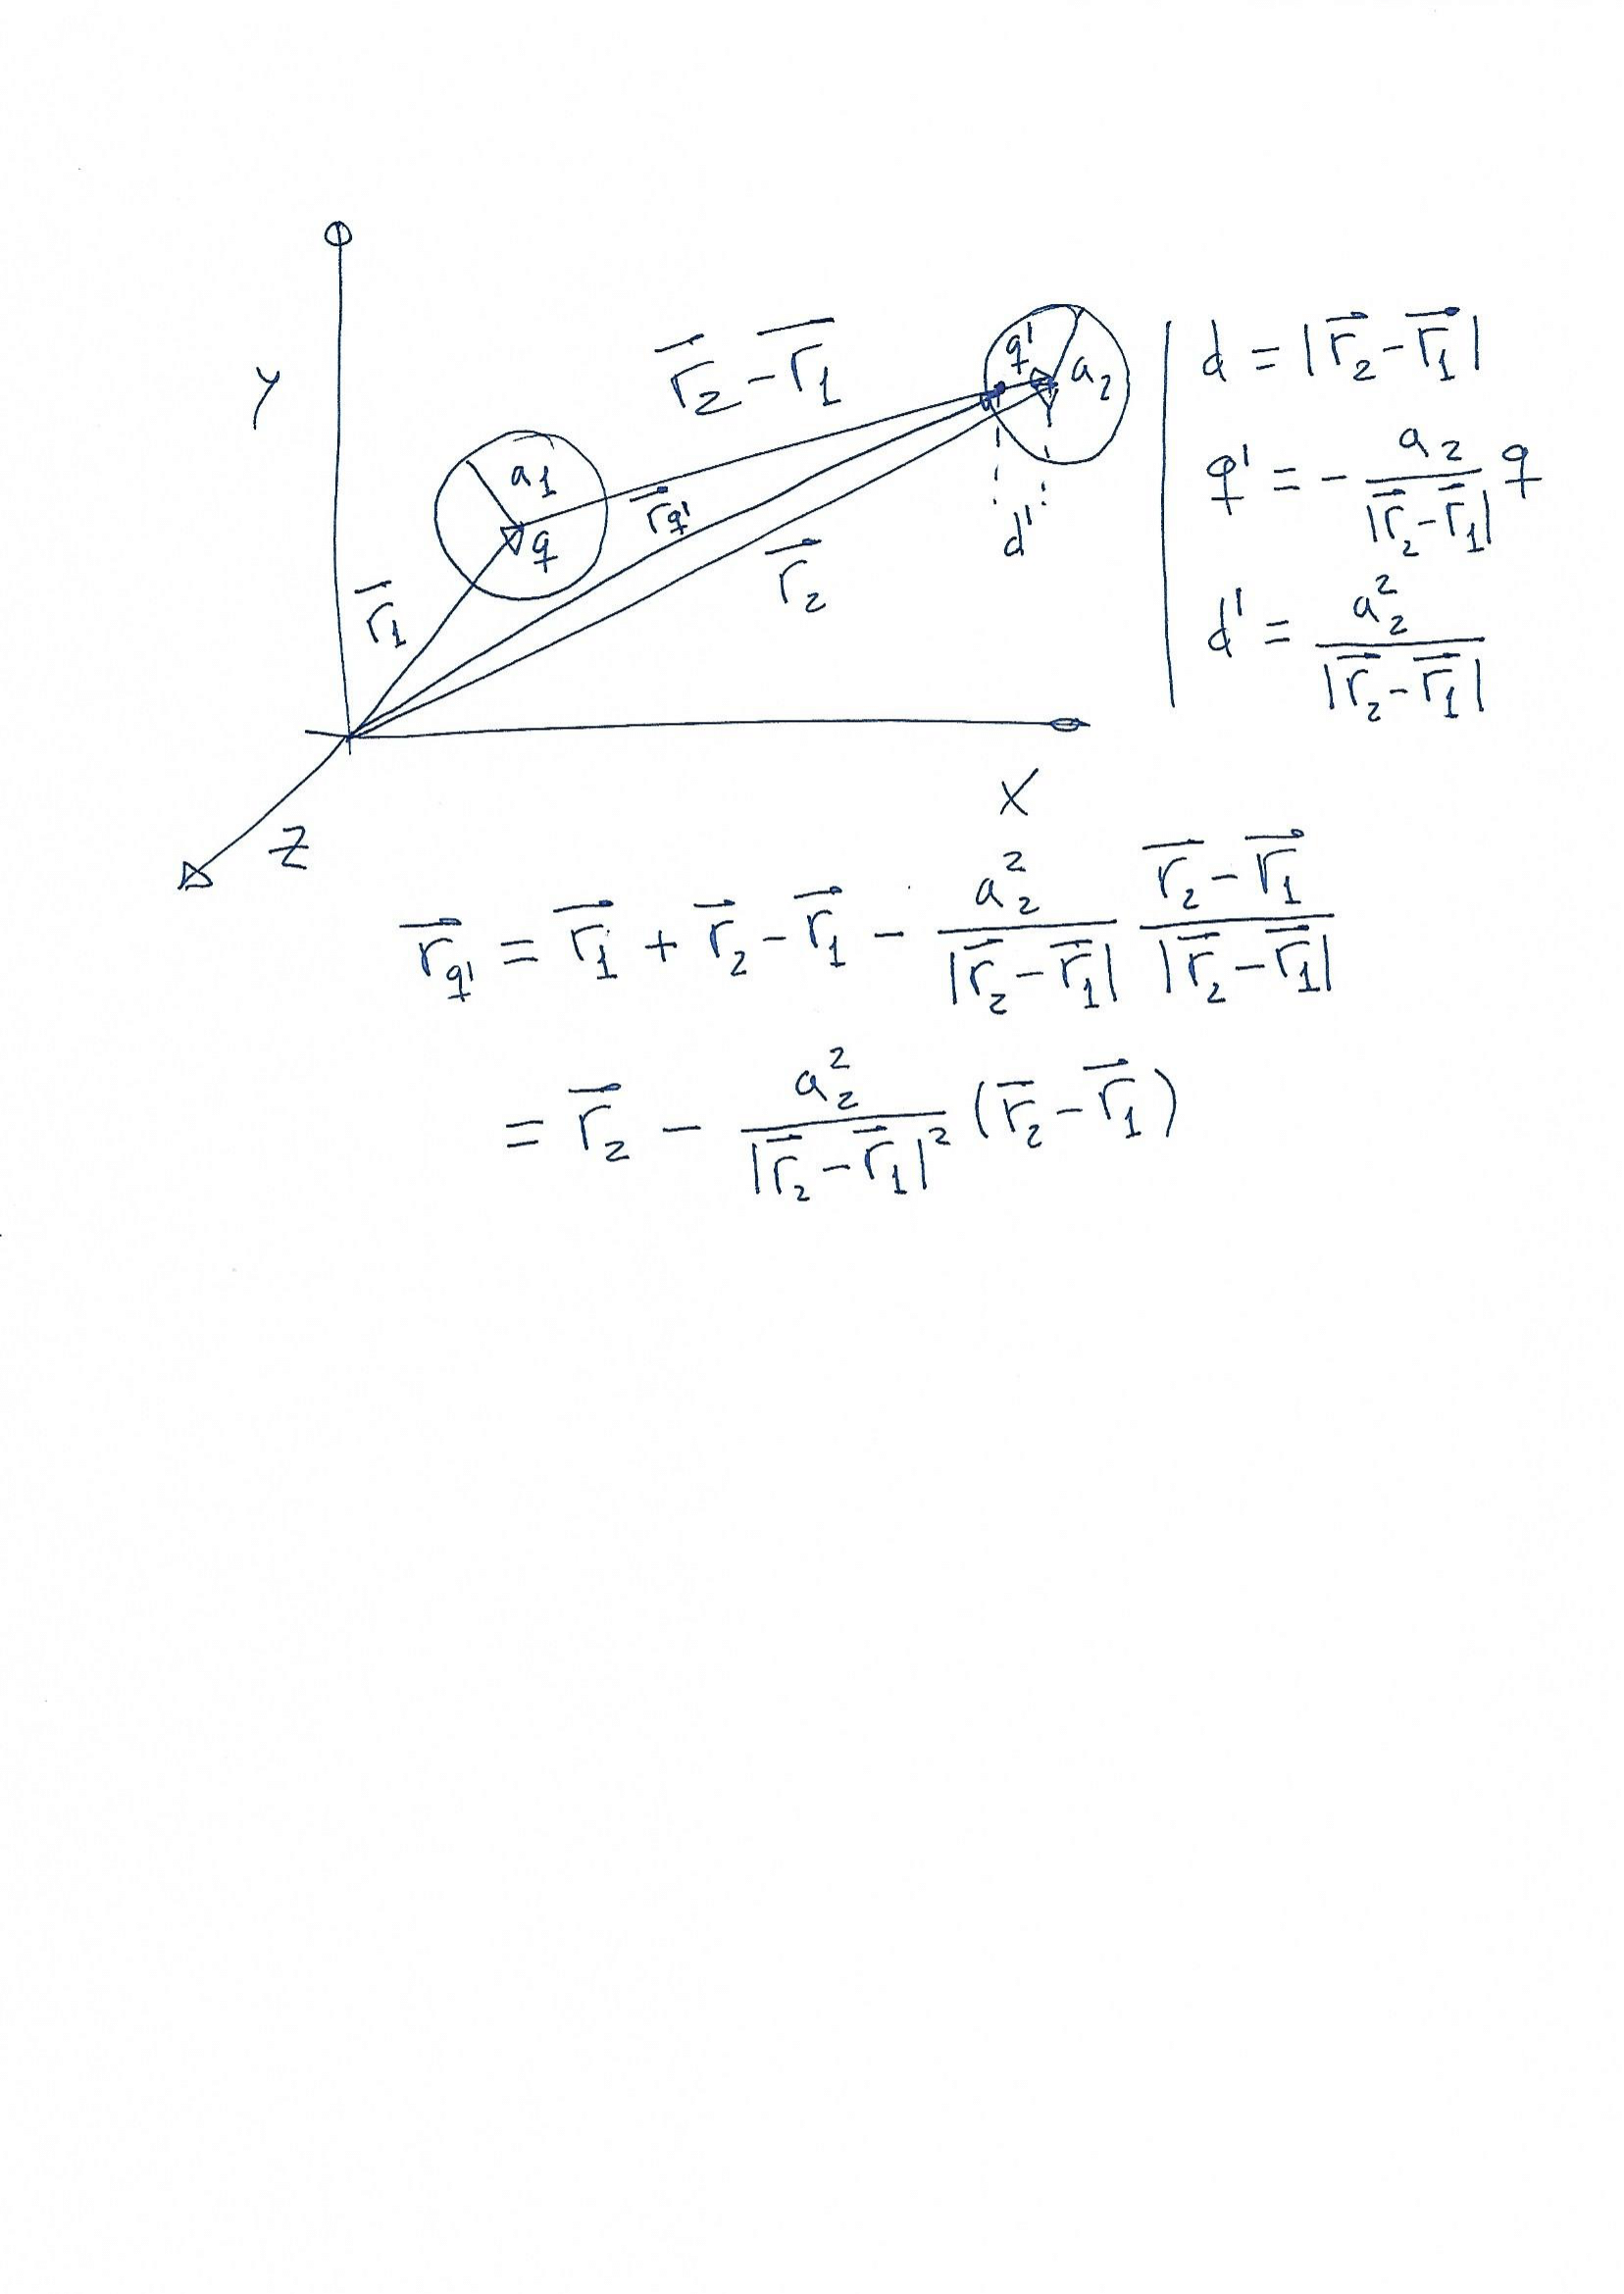 Y
r⃗₂ - r⃗₁
q'
a₂
a₁
q
r⃗q'
d'
r⃗₂
r⃗₁
X
Z
d = |r⃗₂ - r⃗₁|
q' = - a₂/|r⃗₂ - r⃗₁| q
d' = a₂²/|r⃗₂ - r⃗₁|
r⃗q' = r⃗₁ + r⃗₂ - r⃗₁ - a₂²/|r⃗₂ - r⃗₁| (r⃗₂ - r⃗₁)/|r⃗₂ - r⃗₁|
= r⃗₂ - a₂²/|r⃗₂ - r⃗₁|² (r⃗₂ - r⃗₁)